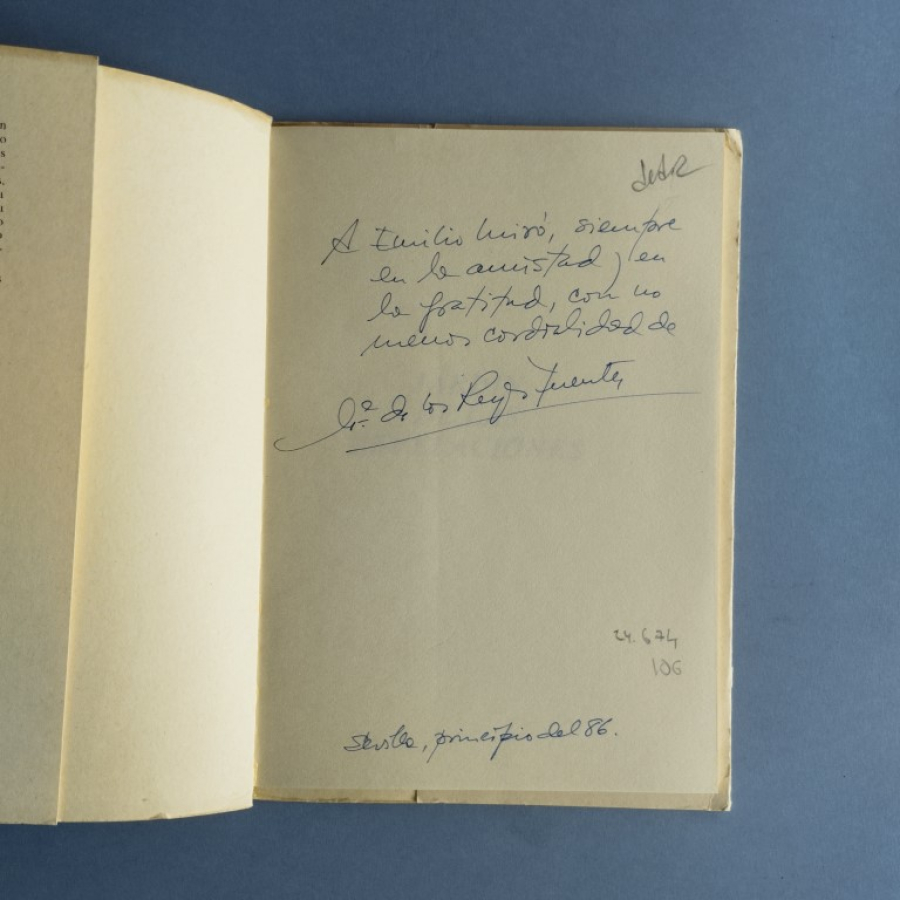 A Emilio Miró, siempre
en la amistad y en
la gratitud, con no
menos cordialidad de
Mª de los Reyes Fuentes
24.674
106
Sevilla, principio del 86.